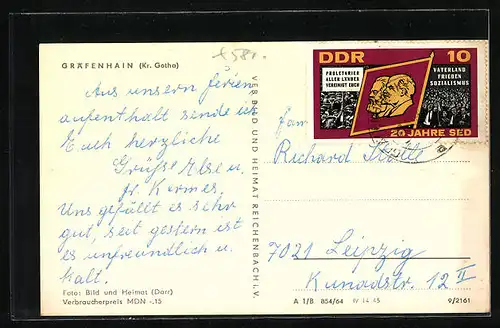 £581.
GRÄFENHAIN (Kr. Gotha)
Aus unsern ferien
aufenthalt sende ich
Euch herzliche
Grüße Else u.
Fr. Kermes.
Uns gefällt es sehr
gut, seit gestern ist
es unfreundlich u.
kalt.
Foto: Bild und Heimat (Darr)
Verbraucherpreis MDN -.15
VEB BILD UND HEIMAT REICHENBACH I. V.
DDR 10
PROLETARIER
ALLER LÄNDER
VEREINIGT EUCH
VATERLAND
FRIEDEN
SOZIALISMUS
20 JAHRE SED
Fam
Richard
7021 Leipzig
Kunadstr. 12 II
A 1/B 854/64 IV 14 45 9/2161